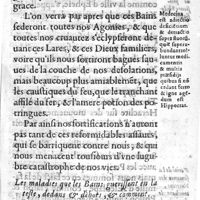 grace.
L'on verra par apres que ces Bains
federont toutes nos Agonies, & que
toutes nos cruautez s'eclypseront de-
uant ces Lares, & ces Dieux familiers,
voire qu'ils nous sortiront bagues sau-
ues de la couche de nos desolations,
mais beaucoup plus amiablement, que
les causticqs du feu, que le tranchant
affilé du fer, & l'amere potion des po-
tringues.
Par ainsi nos fortifications n'auront
pas tant de ces reformidables assauts,
qui se barriquent contre nous, & qui
nous menacent tousiours d'vne lugu-
bre catastrophe de nos vies.
Les maladies que les Bains guerissent en la
teste, dedans & dehors, & comment.
Medecina
est adiectio
deficientis
& detractio
superfluorũ:
quæ supera-
bundant
medicamen-